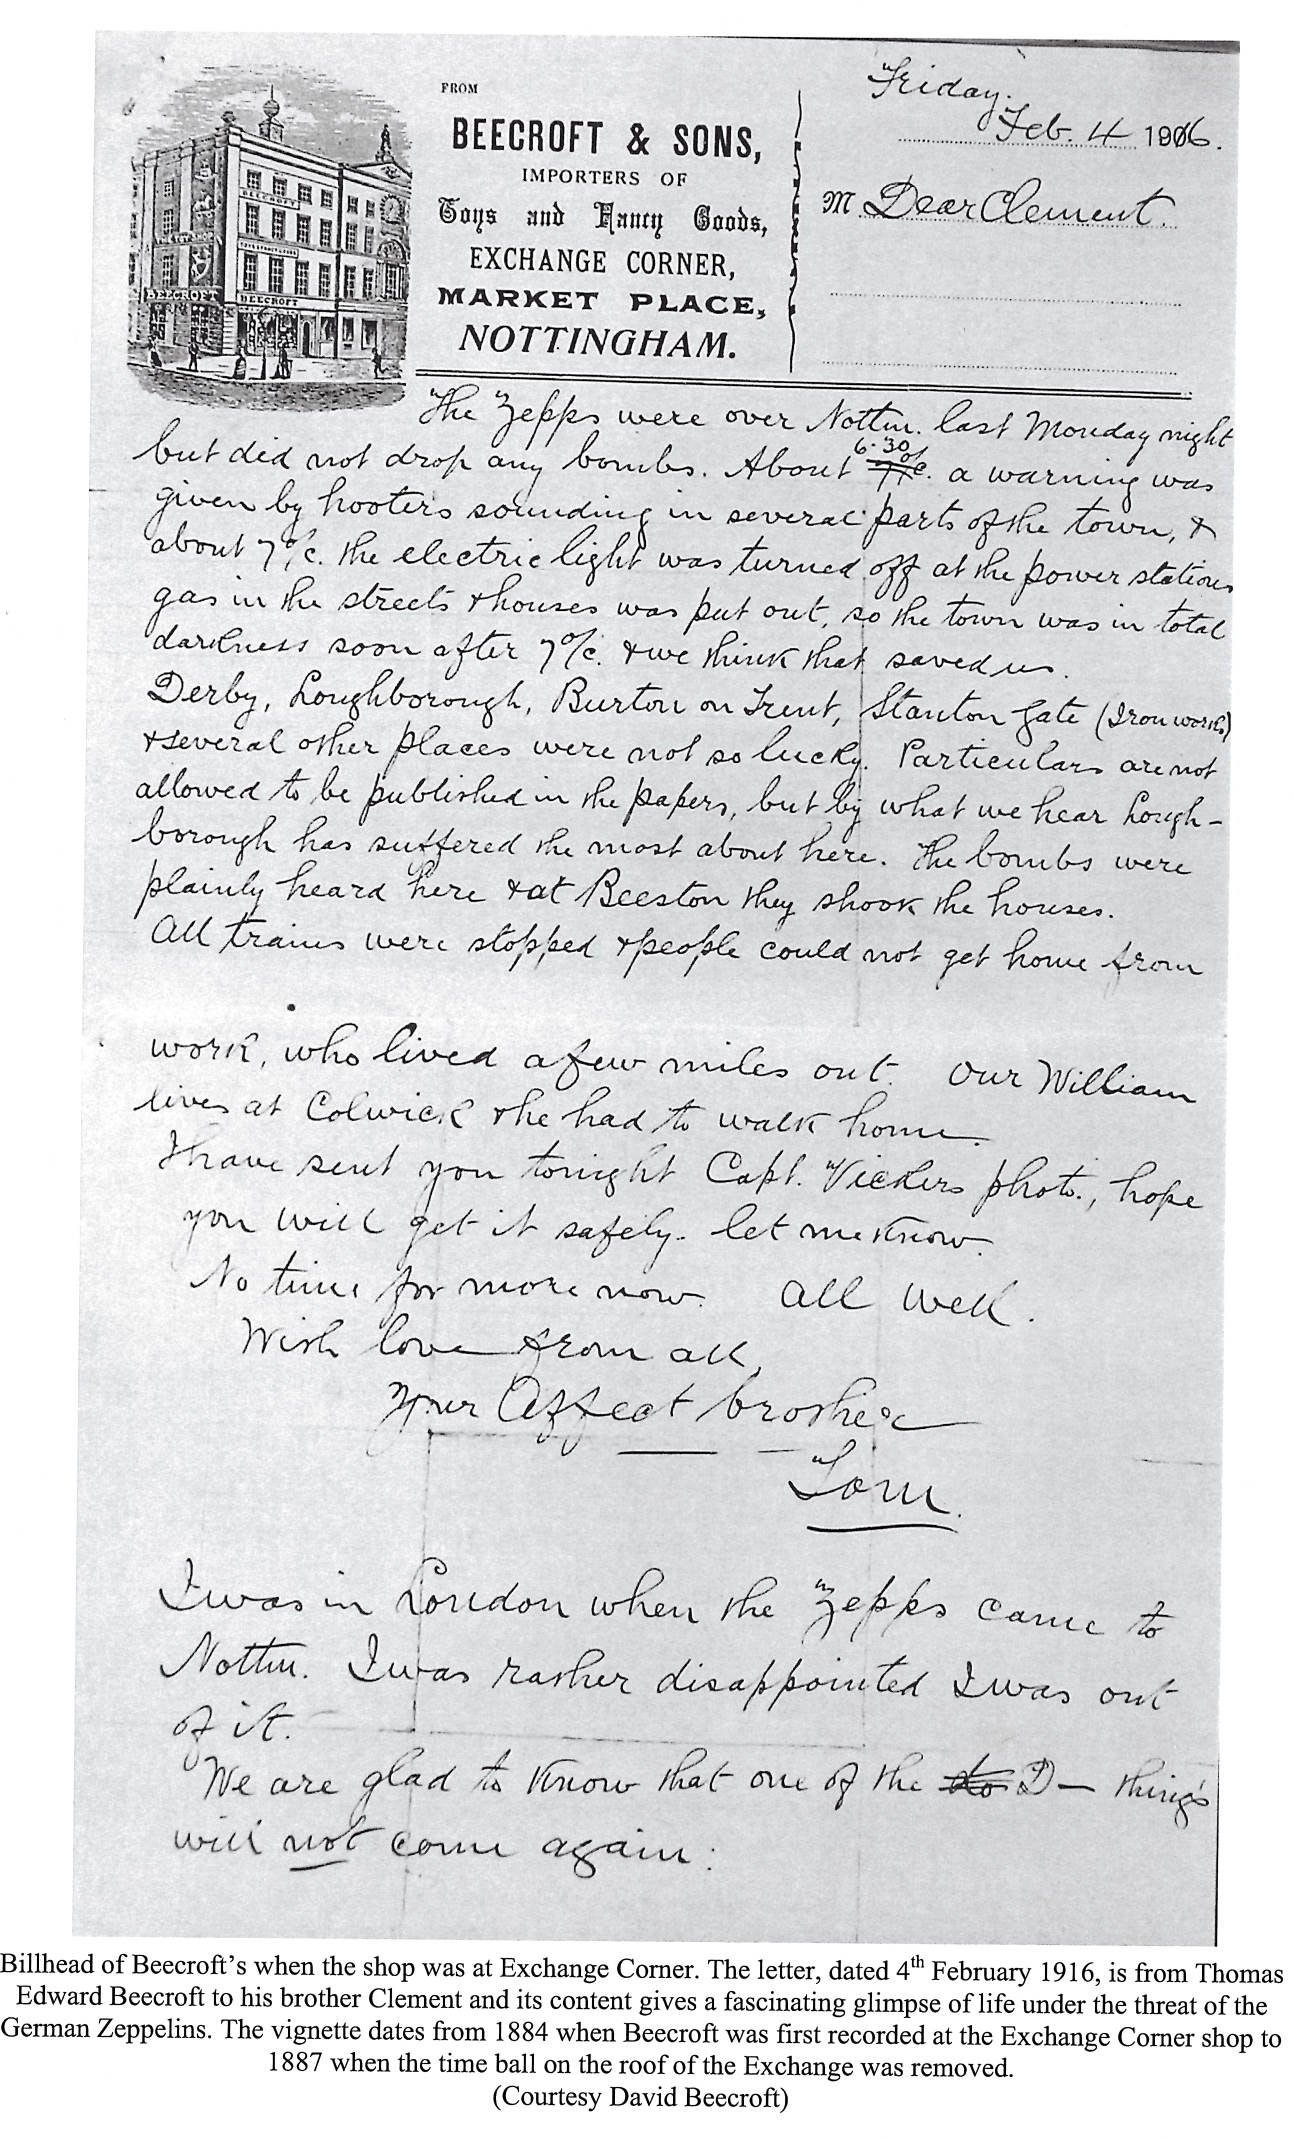 FROM
BEECROFT & SONS,
IMPORTERS OF
Toys and Fancy Goods,
EXCHANGE CORNER,
MARKET PLACE,
NOTTINGHAM.
BEECROFT
BEECROFT
BEECROFT
Friday.
Feb. 4 1916.
M Dear Clement.
The Zepps were over Nottm. last Monday night
but did not drop any bombs. About 6.30 o/c. a warning was
given by hooters sounding in several parts of the town, &
about 7 o/c. the electric light was turned off at the power station
gas in the streets & houses was put out, so the town was in total
darkness soon after 7 o/c. & we think that saved us.
Derby, Loughborough, Burton on Trent, Stanton Gate (Iron works)
& several other places were not so lucky. Particulars are not
allowed to be published in the papers, but by what we hear Lough-
borough has suffered the most about here. The bombs were
plainly heard here & at Beeston they shook the houses.
All trains were stopped & people could not get home from
work, who lived a few miles out. Our William
lives at Colwick & he had to walk home.
I have sent you tonight Capt. Vickers photo., hope
you will get it safely. let me know.
No time for more now. All well.
With love from all,
Your Affect brother
Tom.
I was in London when the Zepps came to
Nottm. I was rather disappointed I was out
of it.
We are glad to know that one of the D— things
will not come again.
Billhead of Beecroft's when the shop was at Exchange Corner. The letter, dated 4th February 1916, is from Thomas
Edward Beecroft to his brother Clement and its content gives a fascinating glimpse of life under the threat of the
German Zeppelins. The vignette dates from 1884 when Beecroft was first recorded at the Exchange Corner shop to
1887 when the time ball on the roof of the Exchange was removed.
(Courtesy David Beecroft)